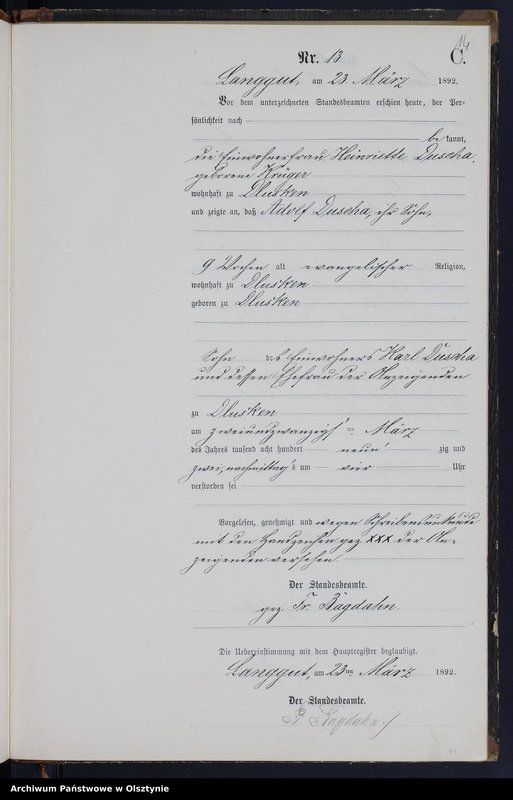 14
C.
Nr. 13.
Langgut, am 23. März 1892.
Vor dem unterzeichneten Standesbeamten erschien heute, der Per-
sönlichkeit nach
bekannt,
die Einwohnerfrau Heinriette Duscha,
geborene Krüger
wohnhaft zu Dlusken
und zeigte an, daß Adolf Duscha, ihr Sohn,
9 Wochen alt evangelischer Religion,
wohnhaft zu Dlusken
geboren zu Dlusken
Sohn des Einwohners Karl Duscha
und dessen Ehefrau der Anzeigenden
zu Dlusken
am zweiundzwanzigsten März
des Jahres tausend acht hundert neunzig und
zwei, nachmittags um vier Uhr
verstorben sei
Vorgelesen, genehmigt und wegen Schreibensunkunde
mit den Handzeichen gez XXX der An-
zeigenden versehen
Der Standesbeamte.
gez. Fr. Bagdahn.
Die Uebereinstimmung mit dem Hauptregister beglaubigt.
Langgut, am 23ten März 1892.
Der Standesbeamte.
Fr. Bagdahn
Archiwum Państwowe w Olsztynie